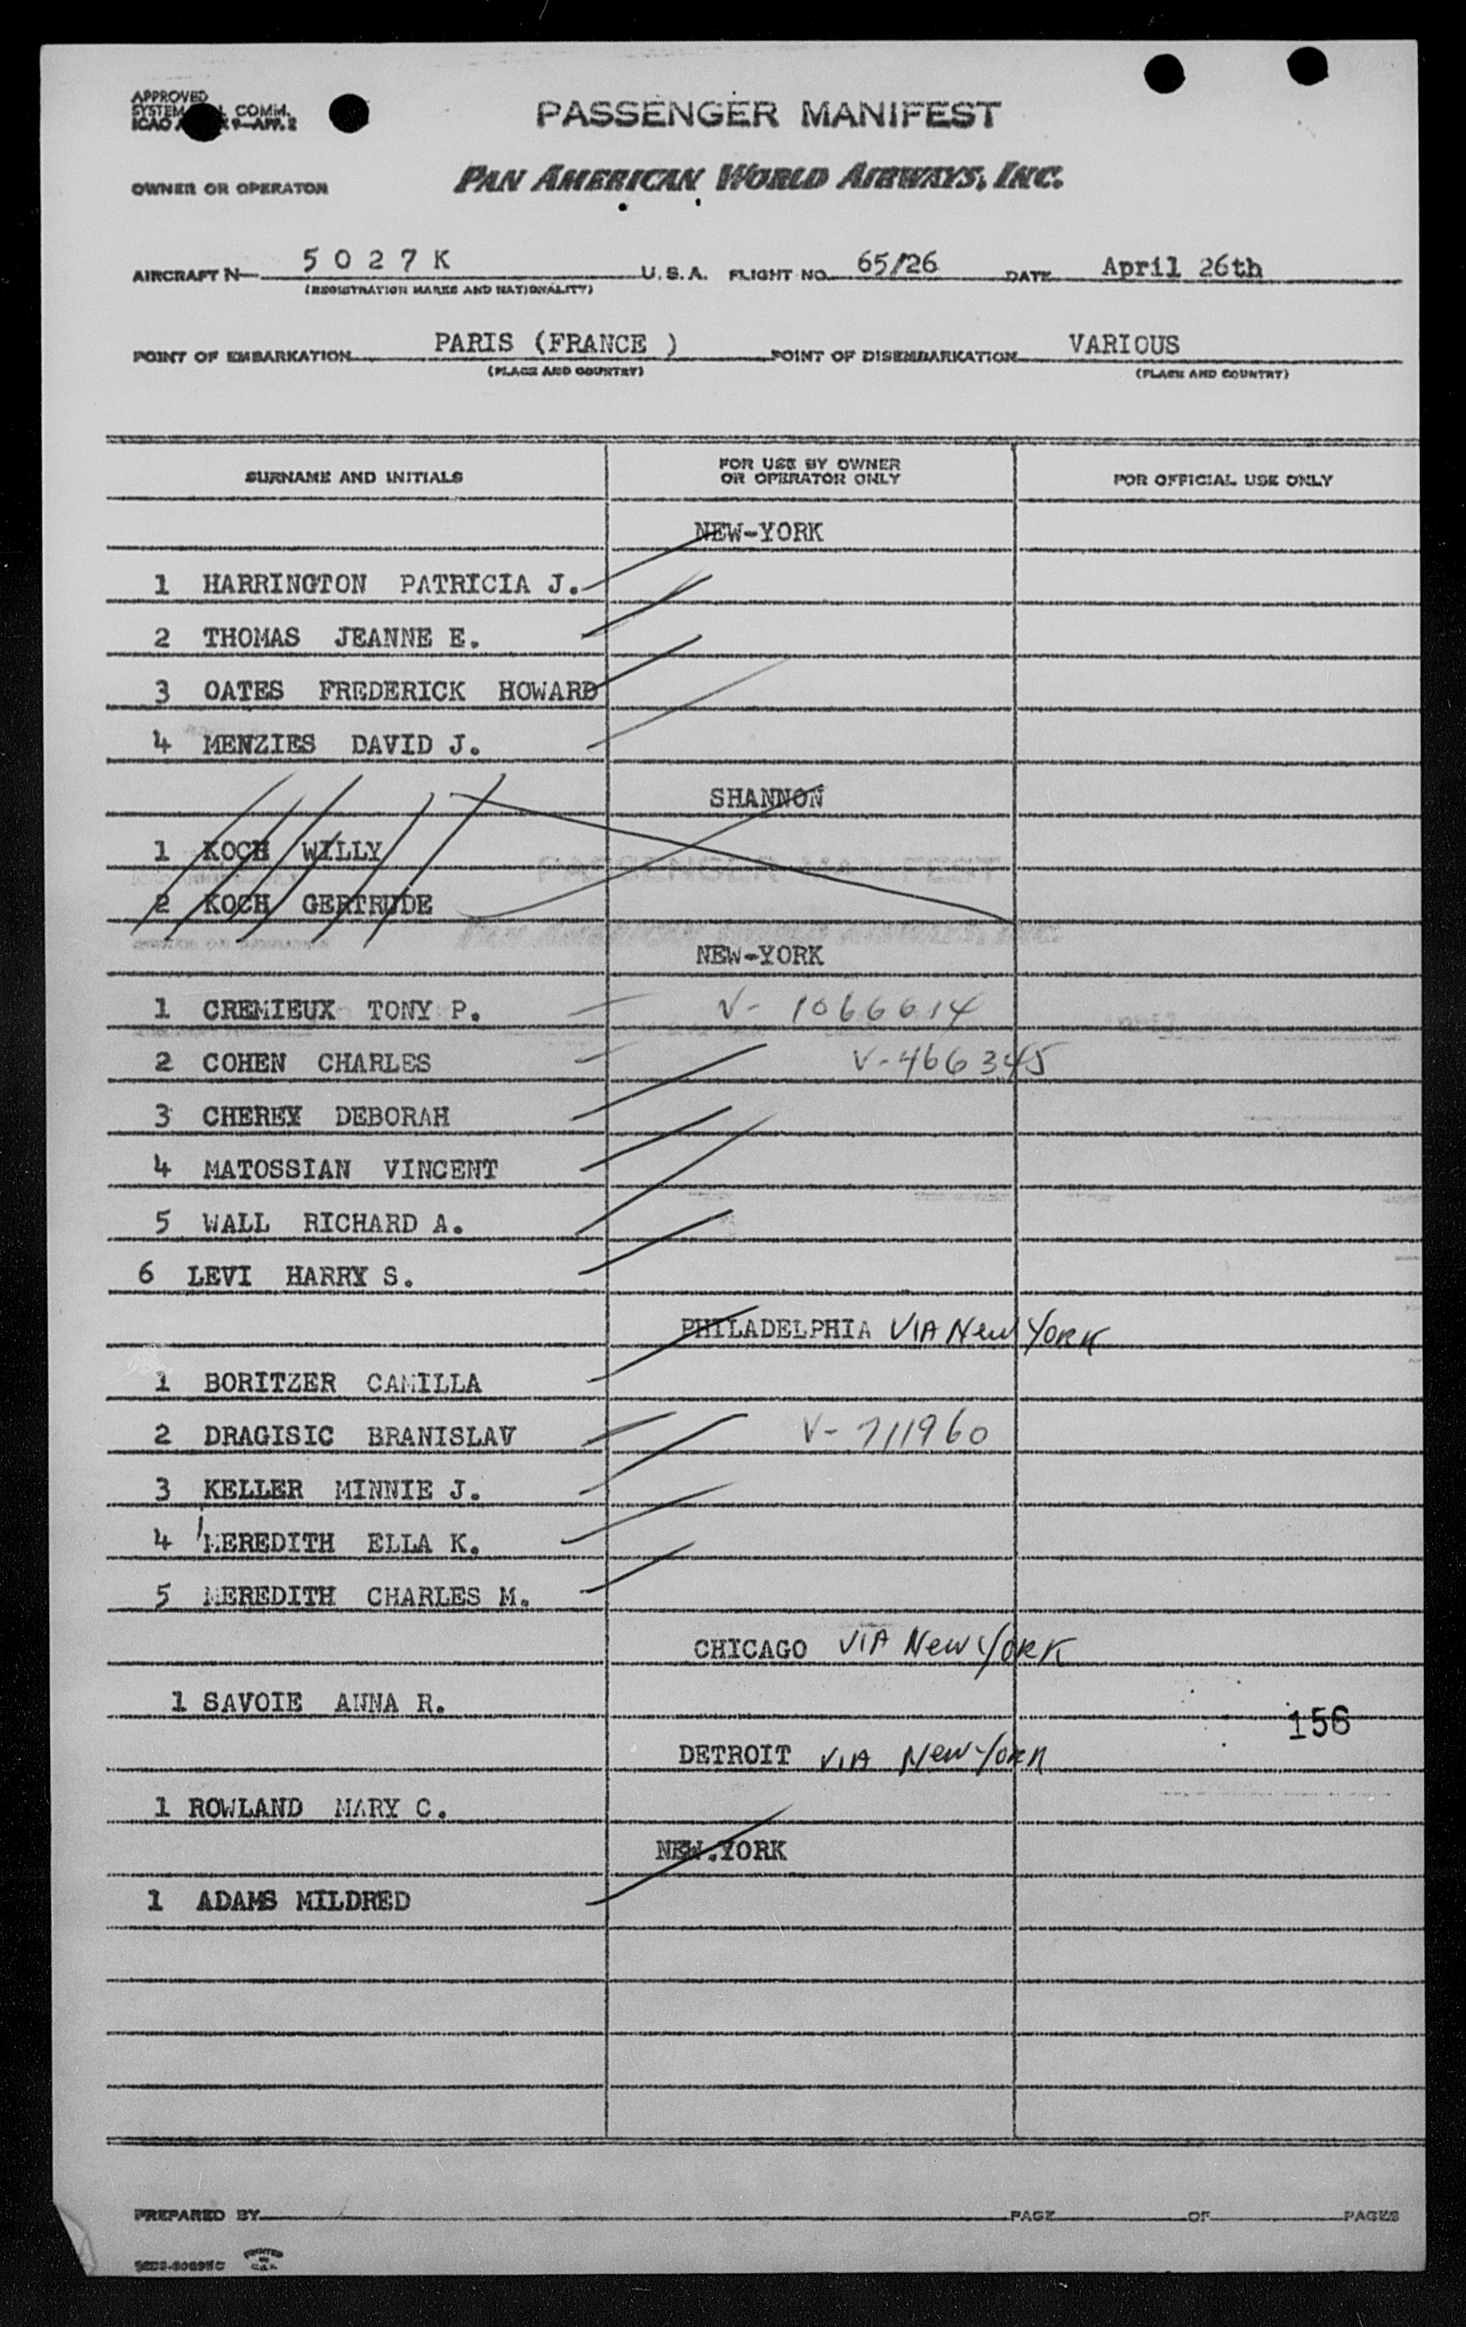 APPROVED
COMM.
PASSENGER MANIFEST
OWNER OR OPERATOR
PAN AMERICAN WORLD AIRWAYS, INC.
AIRCRAFT N— 5 0 2 7 K U. S. A. FLIGHT NO. 65/26 DATE April 26th
(REGISTRATION MARKS AND NATIONALITY)
POINT OF EMBARKATION PARIS (FRANCE ) POINT OF DISEMBARKATION VARIOUS
(PLACE AND COUNTRY) (PLACE AND COUNTRY)
SURNAME AND INITIALS FOR USE BY OWNER OR OPERATOR ONLY FOR OFFICIAL USE ONLY
NEW-YORK
1 HARRINGTON PATRICIA J.
2 THOMAS JEANNE E.
3 OATES FREDERICK HOWARD
4 MENZIES DAVID J.
SHANNON
1 KOCH WILLY
PASSENGER MANIFEST
2 KOCH GERTRUDE
PAN AMERICAN WORLD AIRWAYS, INC.
NEW-YORK
1 CREMIEUX TONY P. V- 1066614
2 COHEN CHARLES V-466345
3 CHEREY DEBORAH
4 MATOSSIAN VINCENT
5 WALL RICHARD A.
6 LEVI HARRY S.
PHILADELPHIA VIA New York
1 BORITZER CAMILLA
2 DRAGISIC BRANISLAV V- 711960
3 KELLER MINNIE J.
4 MEREDITH ELLA K.
5 MEREDITH CHARLES M.
CHICAGO VIA New York
1 SAVOIE ANNA R.
156
DETROIT VIA New York
1 ROWLAND MARY C.
NEW.YORK
1 ADAMS MILDRED
PREPARED BY PAGE OF PAGES